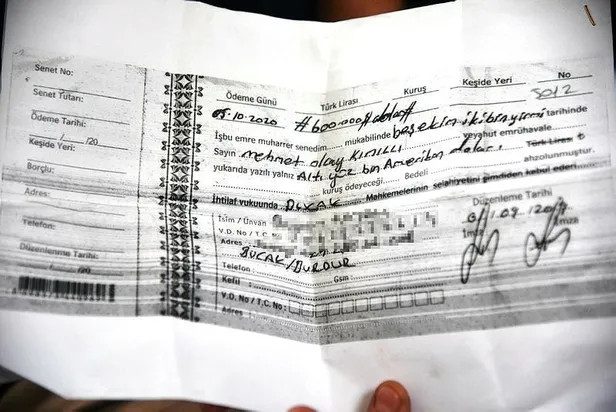 Senet No:
Senet Tutarı:
Ödeme Tarihi:
/ /20
Keşide Yeri:
Borçlu:
Adres:
Telefon:
Düzenlenme Tarihi:
/ /20
Ödeme Günü Türk Lirası Kuruş Keşide Yeri No
05.10.2020 #600.000# 5012
İşbu emre muharrer senedim mukabilinde beş ekim ikibinyirmi tarihinde
Sayın mehmet olay kımıllı veyahut emrühavale
yukarıda yazılı yalnız Altı yüz bin Amerikan doları Türk Lirası
kuruş ödeyeceğ. Bedeli ahzolunmuştur.
İhtilaf vukuunda BUCAK Mahkemelerinin selahiyetini şimdiden kabul ederi
İsim / Ünvan Düzenleme Tarihi
V.D. No / T.C. No:
Adres İmza İmza
BUCAK/BURDUR
Telefon: Gsm:
Kefil:
V.D. No / T.C. No:
Adres: